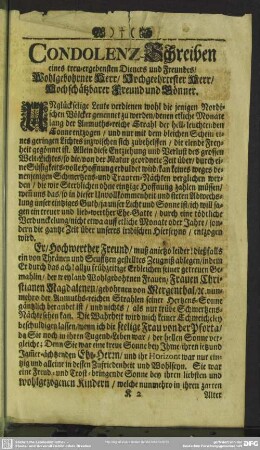 CONDOLENZ-Schreiben
eines treu-ergebensten Dieners und Freundes/
Wohlgebohrner Herr/ Hochgeehrtester Herr/
Hochschätzbarer Freund und Gönner.
UNglückselige Leute verdienen wohl die jenigen Nordi-
schen Völcker genennet zu werden/ denen etliche Monate
lang der Anmuths-reiche Strahl der hell-leuchtenden
Sonne entzogen/ und nur mit dem bleichen Schein ei-
nes geringen Lichtes inzwischen sich zubehelffen/ die elende Frey-
heit gegönnet ist. Allein diese Entziehung und Verlust des grossen
Welt-Lichtes/ so die/ von der Natur geordnete Zeit über/ durch ei-
ne Süßigkeits-volle Hoffnung erduldet wird/ kan keines weges de-
nenjenigen Schmertzens- und Trauer-Nächten verglichen wer-
den/ die wir Sterblichen ohne eintzige Hoffnung zahlen müssen/
wenn uns das/ so in dieser Unvollkommenheit und steten Abwechs-
lung unser eintziges Guth/ gantzer Liecht und Sonne ist/ ich will sa-
gen ein treuer und liebwerther Ehe-Gatte/ durch eine tödliche
Verdunckelung nicht etwa auf etliche Monate oder Jahre/ son-
dern die gantze Zeit über unsers irdischen Hierseyns/ entzogen
wird.
Er/ Hochwerther Freund/ muß anietzo leider! dießfalls
ein von Thränen und Seufftzen gestilltes Zeugniß ablegen/ indem
Er durch das ach! allzu frühzeitige Erbleichen seiner getreuen Ge-
mahlin/ der weyland Wohlgebohrnen Frauen/ Frauen Chri-
stianen Magdalenen/ gebohrner von Mergenthal/ n. nun-
mehro der Anmuths-reichen Strahlen seiner Hertzens-Sonne
gäntzlich beraubet ist/ und nichts/ als nur trübe Schmertzens-
Nächte sehen kan. Die Wahrheit wird mich keiner Schmeicheley
beschuldigen lassen/ wenn ich die seelige Frau von der Pforta/
da Sie noch in ihren Tugend-Leben war/ der hellen Sonne ver-
gleiche: Denn Sie war eine treue Sonne bey Ihme/ ihren itzund
Jammer-ächzenden Ehe-Herrn/ und ihr Horizont war nur ein-
tzig und alleine in dessen Zufriedenheit und Wohlseyn. Sie war
eine Freud- und Trost-bringende Sonne bey ihren liebsten und
wohlgezogenen Kindern/ welche nunmehro in ihren zarten
K 2 Alter